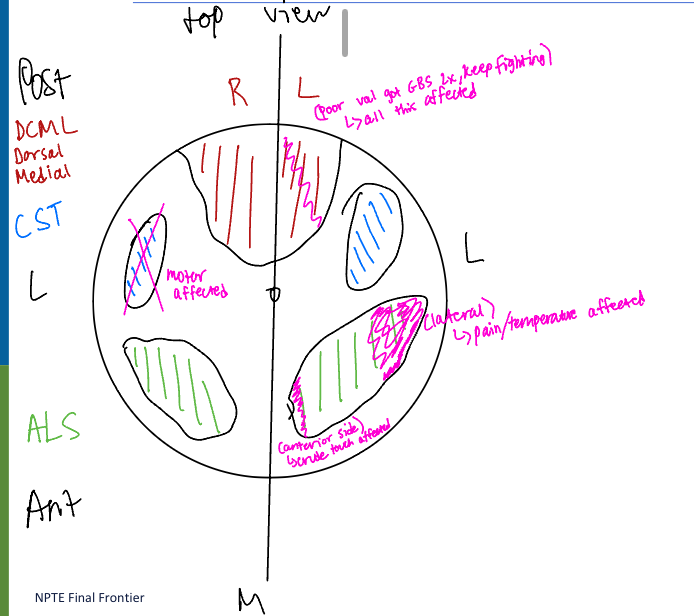 top view
Post
R L
(poor val got GBS 2x, keep fighting)
↳ all this affected
DCML
Dorsal
Medial
CST
L
L
motor
affected
(lateral)
↳ pain/temperature affected
ALS
(anterior side)
↳ crude touch affected
Ant
NPTE Final Frontier
M